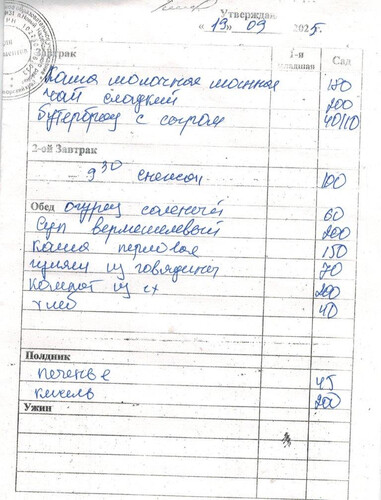 Утверждаю
« 19 » 09 2025.
Завтрак 1-я младшая Сад
Каша молочная манная 180
Чай сладкий 200
бутерброд с сыром 40/10
2-ой Завтрак
- 9 30 снежок 100
Обед огурец соленый 60
Суп вермешелевый 200
каша перловая 150
гуляш из говядины 70
компот из сх 200
хлеб 40
Полдник
печенье 45
кисель 200
Ужин